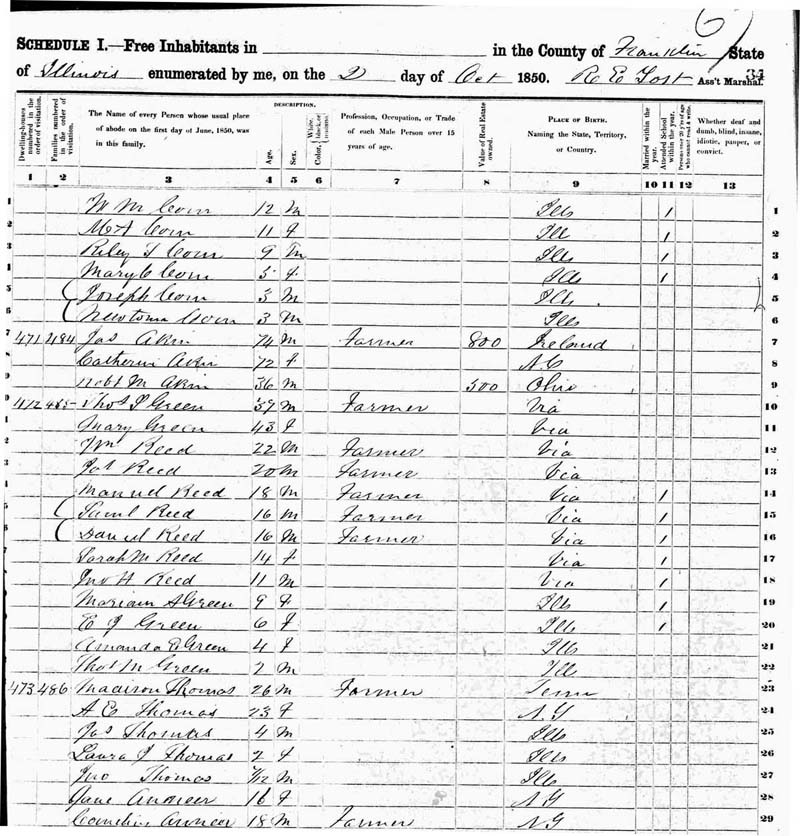 6
SCHEDULE I.—Free Inhabitants in in the County of Franklin State
of Illinois enumerated by me, on the 2 day of Oct 1850. R E Yost Ass't Marshal. 34
Dwelling-houses numbered in the order of visitation.
Families numbered in the order of visitation.
The Name of every Person whose usual place of abode on the first day of June, 1850, was in this family.
DESCRIPTION.
Age.
Sex.
Color, White, black, or mulatto.
Profession, Occupation, or Trade of each Male Person over 15 years of age.
Value of Real Estate owned.
PLACE OF BIRTH. Naming the State, Territory, or Country.
Married within the year.
Attended School within the year.
Persons over 20 y'rs of age who cannot read & write.
Whether deaf and dumb, blind, insane, idiotic, pauper, or convict.
1 2 3 4 5 6 7 8 9 10 11 12 13
1 W M 12 M Ills 1 1
2 M A 11 f Ill 1 2
3 Riley 9 m Ills 1 3
4 Mary C 5 f Ills 1 4
5 Joseph 3 M Ills 5
6 3 M Ills 6
7 471 484 Jas Akin 74 M Farmer 800 Ireland 7
8 Catherin Akin 72 f N C 8
9 Robt M Akin 36 M 500 Ohio 9
0 472 485 Thos Green M Farmer Via 10
1 Mary Green 43 f Via 11
2 Wm Reed 22 M Farmer Via 12
3 Jas Reed 20 M Farmer Via 13
4 Manuel Reed 18 M Farmer Via 1 14
5 Saml Reed 16 M Farmer Via 1 15
6 Daniel Reed 16 M Farmer Via 1 16
7 Sarah M Reed 14 f Via 1 17
8 Jno H Reed 11 M Via 1 18
9 Mariam A Green 9 f Ills 1 19
0 E J Green 6 f Ills 1 20
1 Amanda E Green 4 f Ills 21
2 Thos M Green 2 M Ill 22
473 486 Madison Thomas 26 M Farmer Tenn 23
4 A E Thomas 23 f N Y 24
5 Jas Thomas 4 M Ills 25
6 Laura J Thomas 2 f Ills 26
7 Jno Thomas /12 M Ills 27
8 Jane 16 f N Y 28
9 18 M Farmer N Y 29